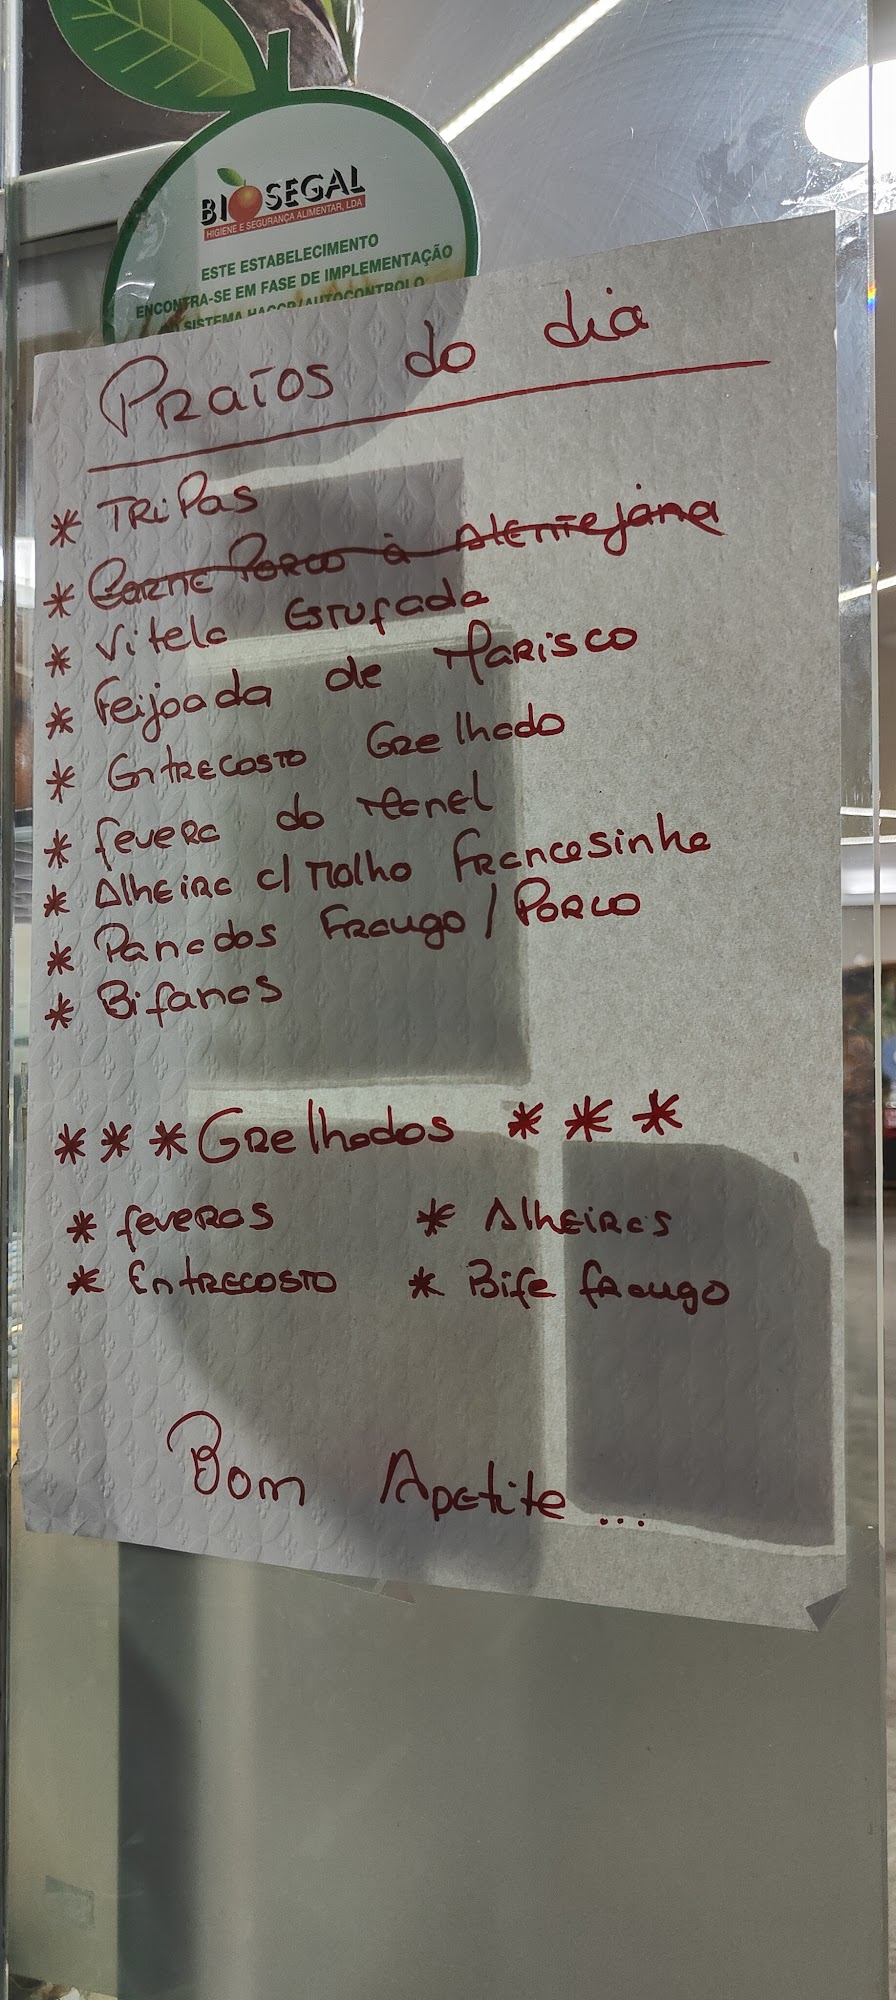 BIOSEGAL
HIGIENE E SEGURANÇA ALIMENTAR, LDA
ESTE ESTABELECIMENTO
ENCONTRA-SE EM FASE DE IMPLEMENTAÇÃO
SISTEMA HACCP/AUTOCONTROLO
Pratos do dia
* Tripas
* Carne Porco à Alentejana
* Vitela Estufada
* Feijoada de Marisco
* Entrecosto Grelhado
* fevera do Manel
* Alheira c/ Molho Francesinha
* Panados Frango/Porco
* Bifanas
*** Grelhados ***
* feveras * Alheiras
* Entrecosto * Bife frango
Bom Apetite...